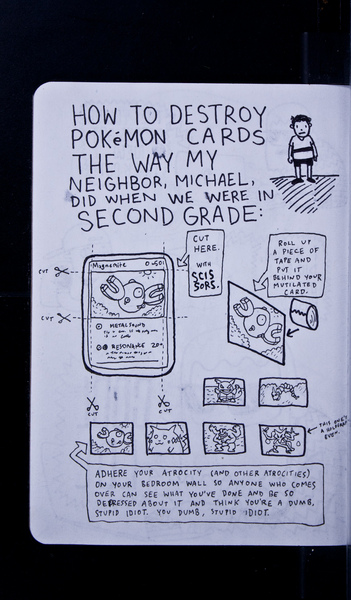 HOW TO DESTROY
POKéMON CARDS
THE WAY MY
NEIGHBOR, MICHAEL,
DID WHEN WE WERE IN
SECOND GRADE:
CUT
HERE.
WITH
SCIS
SORS.
ROLL UP
A PIECE OF
TAPE AND
PUT IT
BEHIND YOUR
MUTILATED
CARD.
CUT
Magnemite
CUT
METAL SOUND
RESONANCE
CUT
CUT
THIS ONE'S
A HOLOGRAPHIC
EVEN.
ADHERE YOUR ATROCITY (AND OTHER ATROCITIES)
ON YOUR BEDROOM WALL SO ANYONE WHO COMES
OVER CAN SEE WHAT YOU'VE DONE AND BE SO
DEPRESSED ABOUT IT AND THINK YOU'RE A DUMB,
STUPID IDIOT. YOU DUMB, STUPID IDIOT.